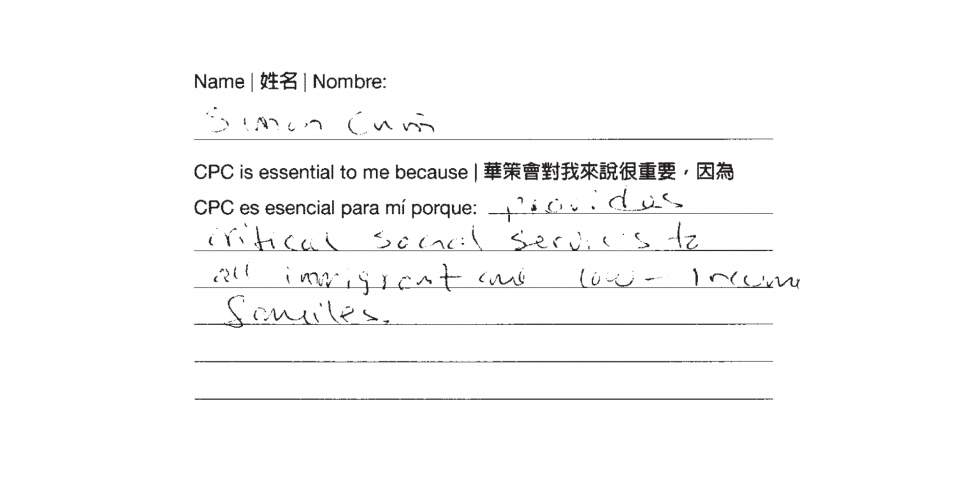 Name | 姓名 | Nombre:
Simon
CPC is essential to me because | 華策會對我來說很重要，因為
CPC es esencial para mí porque: provides
critical social services to
all immigrant and low-income
families.